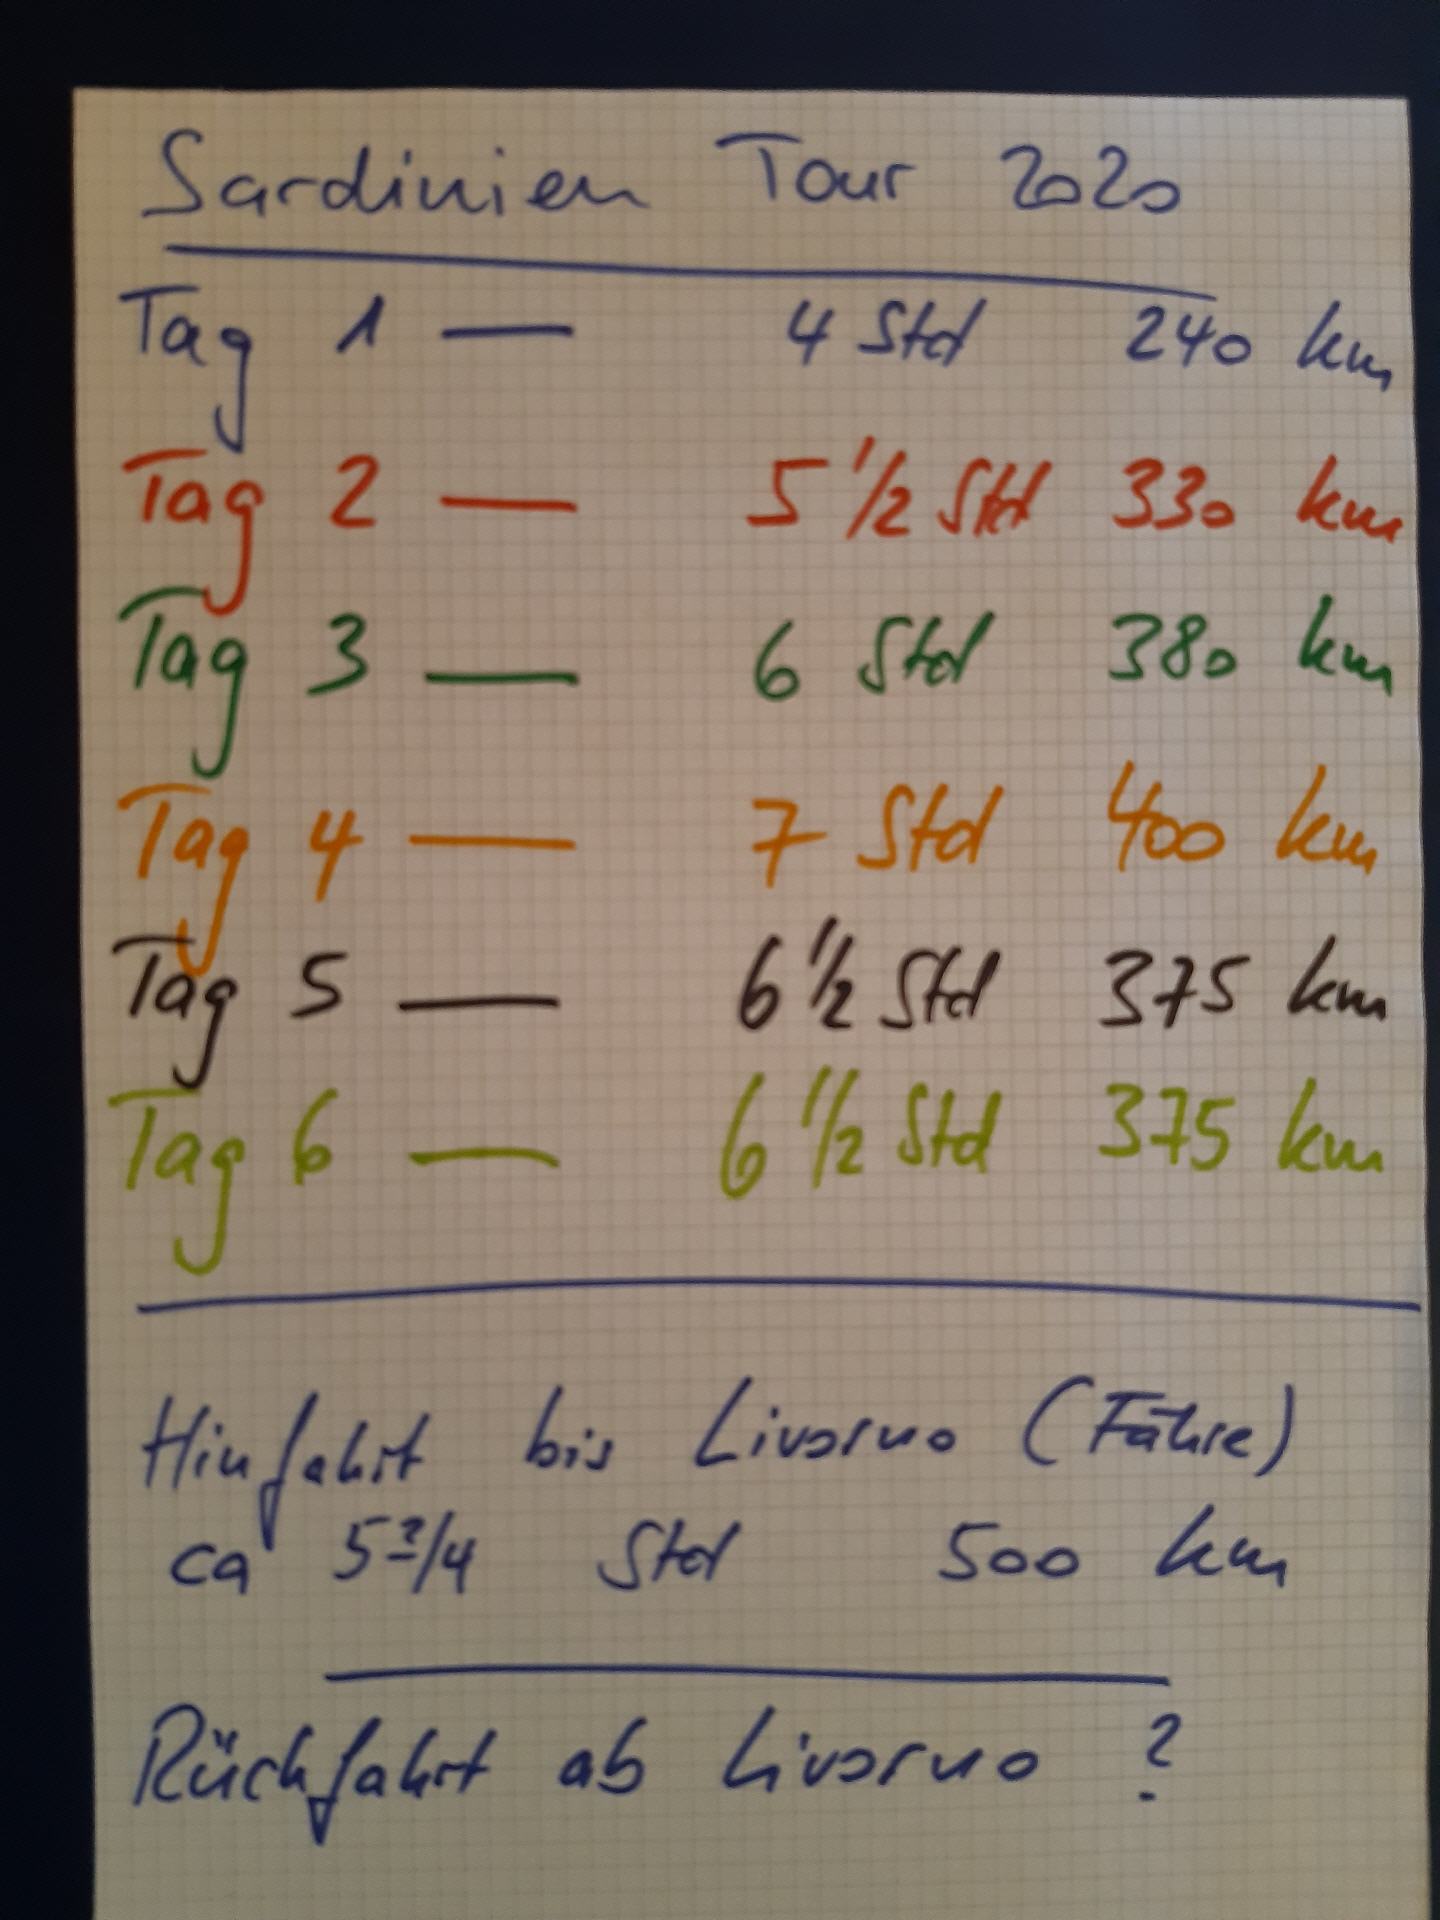 Sardinien Tour 2020
Tag 1 — 4 Std 240 km
Tag 2 — 5 1/2 Std 330 km
Tag 3 — 6 Std 380 km
Tag 4 — 7 Std 400 km
Tag 5 — 6 1/2 Std 375 km
Tag 6 — 6 1/2 Std 375 km
Hinfahrt bis Livorno (Fähre)
ca 5 3/4 Std 500 km
Rückfahrt ab Livorno ?